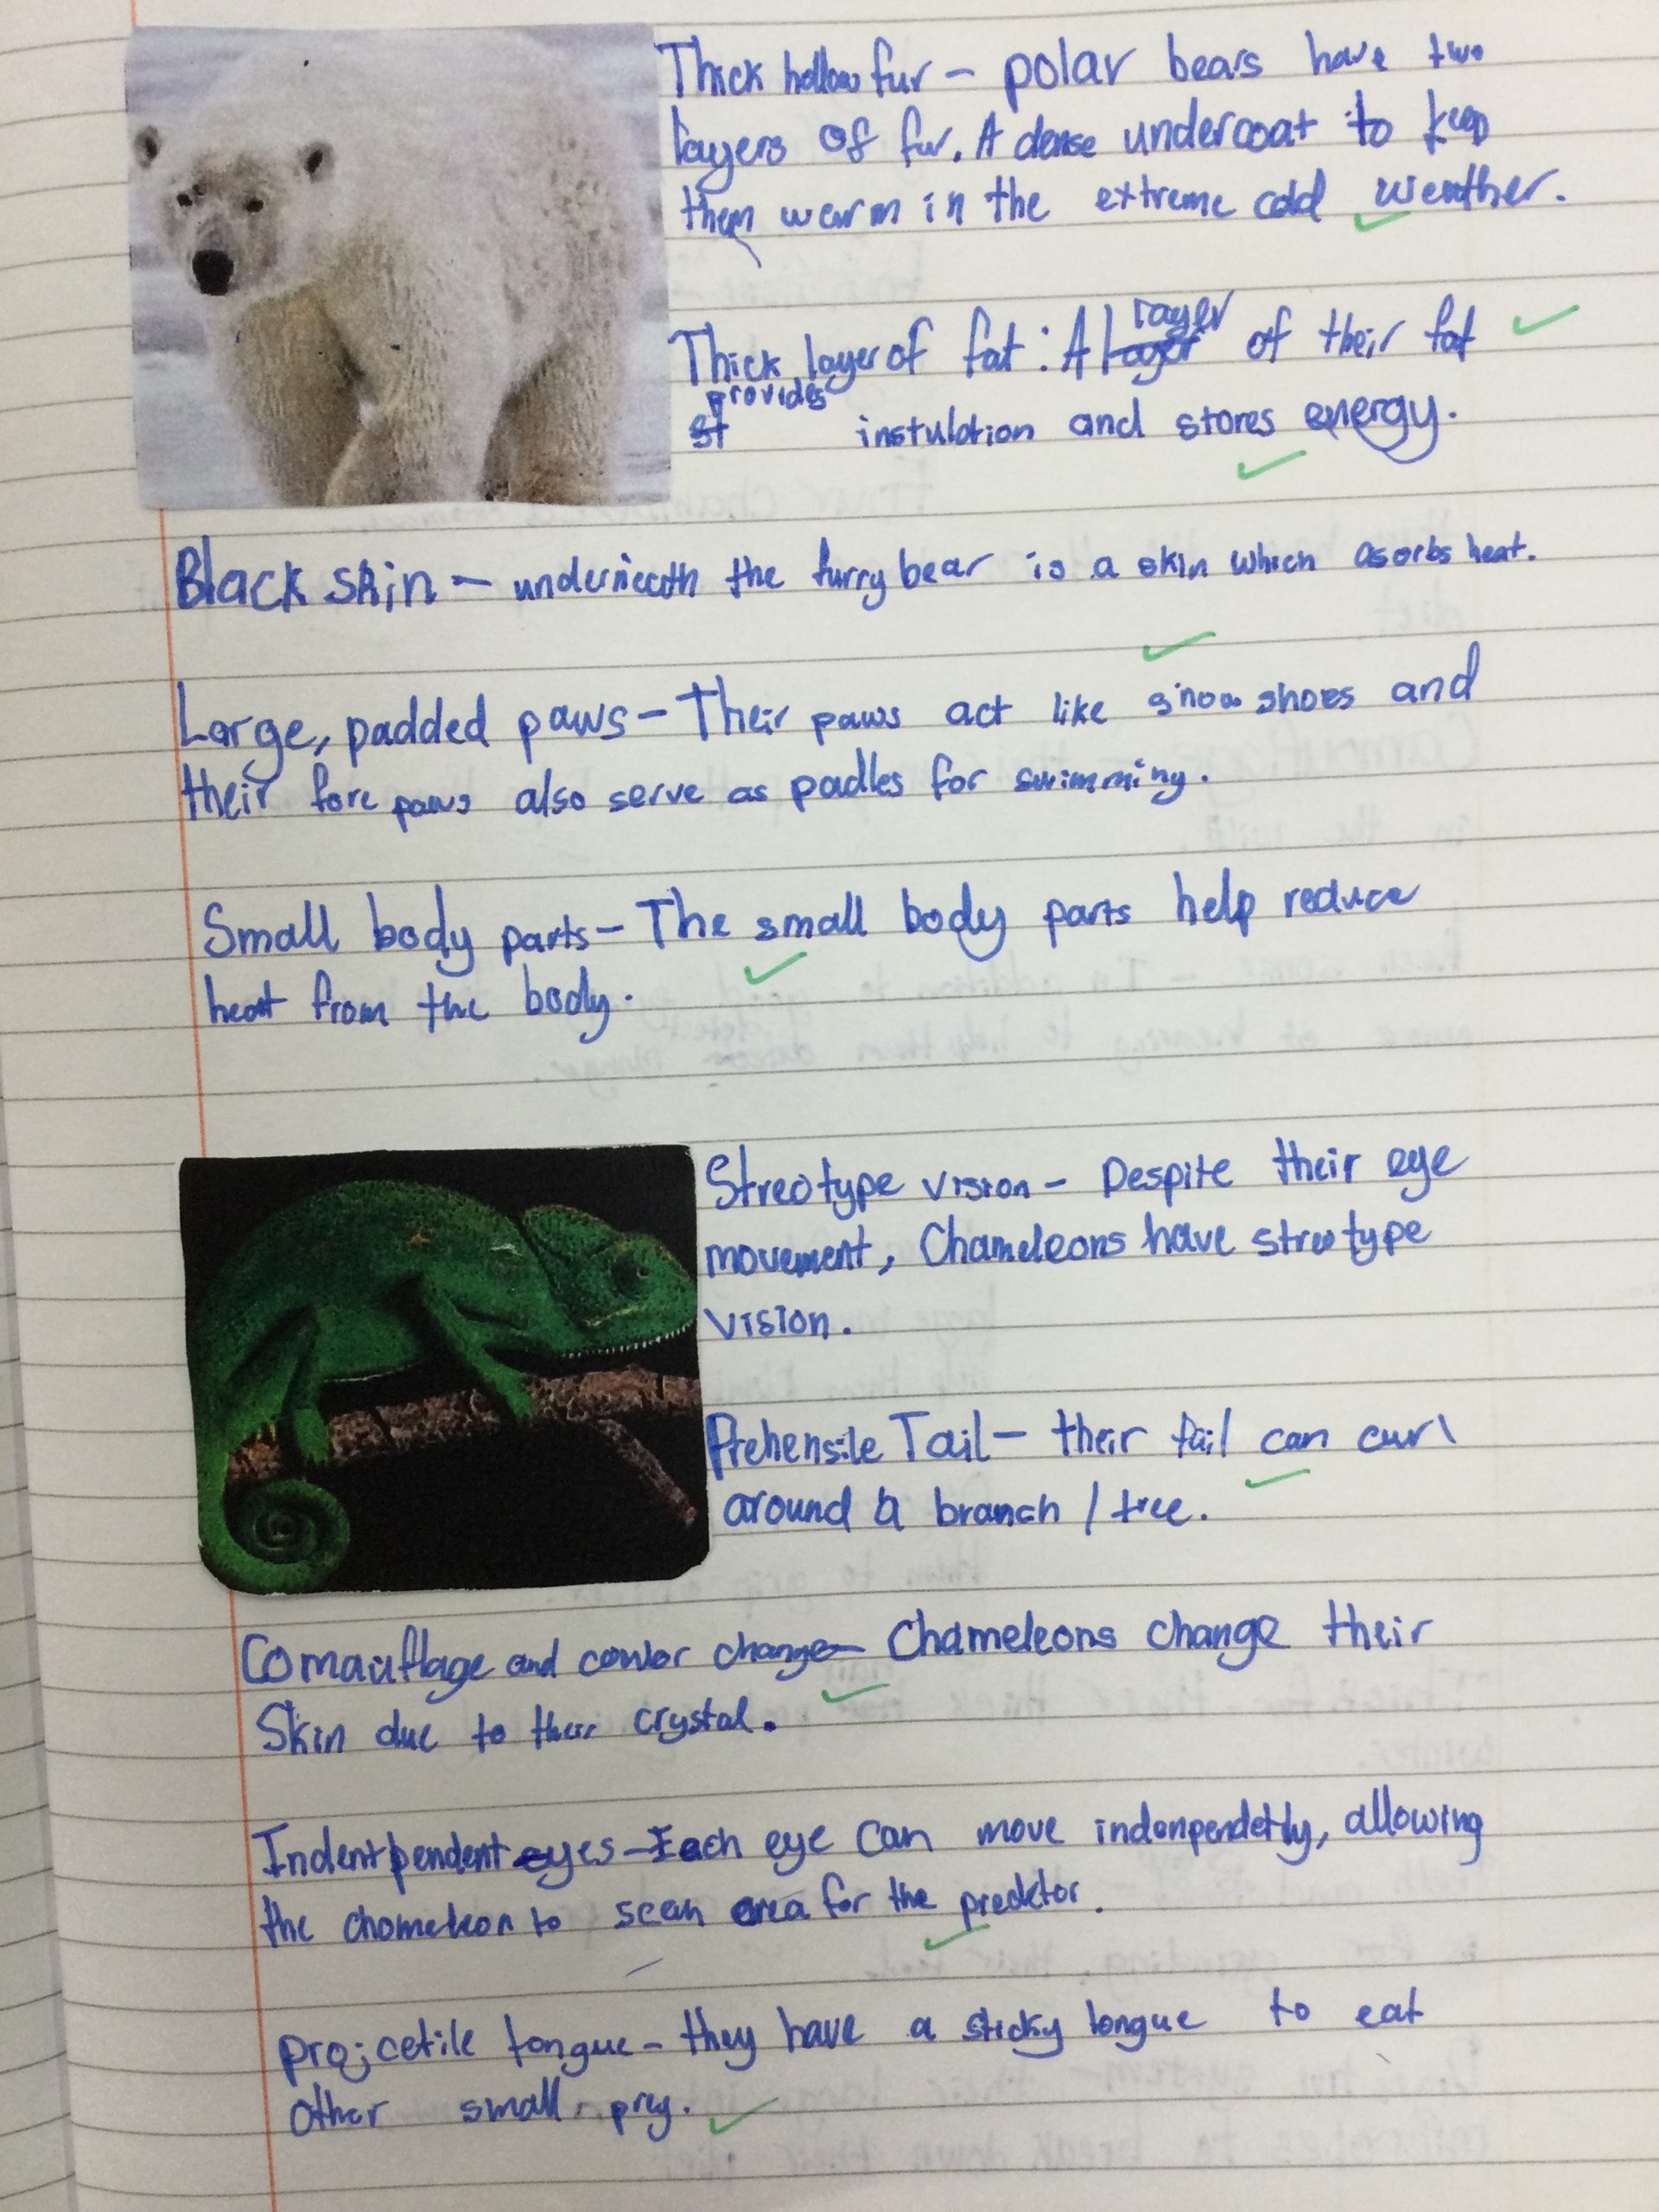 Thick hollow fur - polar bears have two
layers of fur. A dense undercoat to keep
them warm in the extreme cold weather.
Thick layer of fat : A layer of their fat
provides instulation and stores energy.
Black skin - underneath the furry bear is a skin which asorbs heat.
Large, padded paws - Their paws act like snow shoes and
their fore paws also serve as padles for swimming.
Small body parts - The small body parts help reduce
heat from the body.
Streotype vision - Despite their eye
movement, Chameleons have streotype
vision.
Prehensile Tail - their tail can curl
around a branch / tree.
Comauflage and coulor change - Chameleons change their
Skin due to their crystal.
Indentpendent eyes - Each eye can move indenpendetly, allowing
the chameleon to scan area for the predctor.
projcetile tongue - they have a sticky tongue to eat
other small prey.